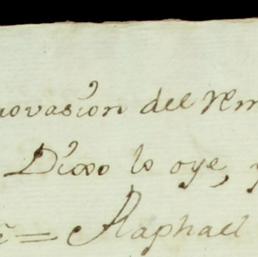 novasion del rem
Dixo lo oye, y
= Raphael